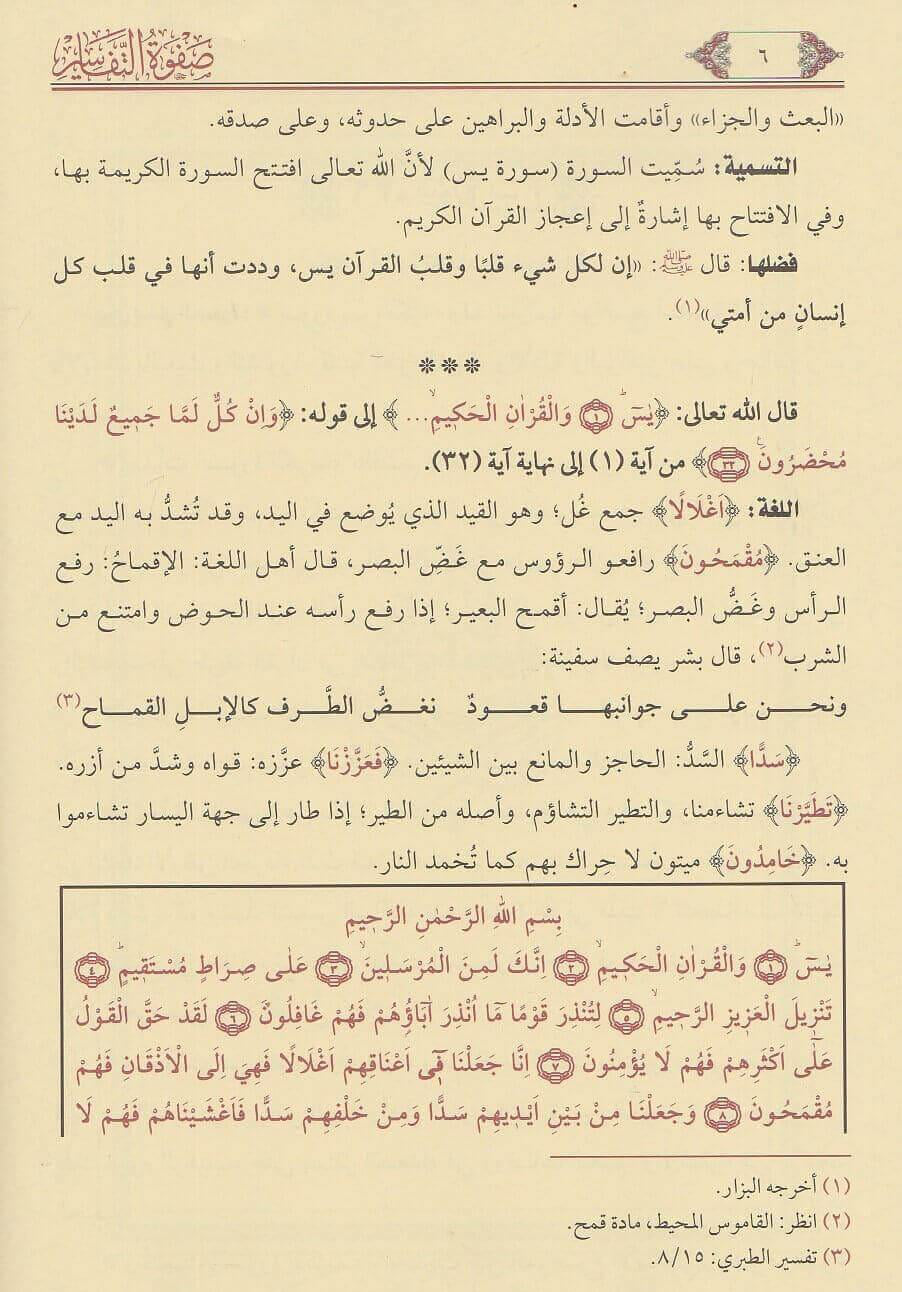 ٦
صفوة التفاسير
«البعث والجزاء» وأقامت الأدلة والبراهين على حدوثه، وعلى صدقه.
التسمية: سُمِّيت السورة (سورة يس) لأنَّ الله تعالى افتتح السورة الكريمة بها،
وفي الافتتاح بها إشارةٌ إلى إعجاز القرآن الكريم.
فضلها: قال ﷺ: «إن لكل شيء قلبًا وقلبُ القرآن يس، وددت أنها في قلب كل
إنسانٍ من أمتي»(١).
***
قال الله تعالى: ﴿يٰسٓ ۝١ وَالْقُرْاٰنِ الْحَكِيمِۙ...﴾ إلى قوله: ﴿وَاِنْ كُلٌّ لَمَّا جَمِيعٌ لَدَيْنَا
مُحْضَرُونَ ۝٣٢﴾ من آية (١) إلى نهاية آية (٣٢).
اللغة: ﴿اَغْلَالًا﴾ جمع غُل؛ وهو القيد الذي يُوضع في اليد، وقد تُشدُّ به اليد مع
العنق. ﴿مُقْمَحُونَ﴾ رافعو الرؤوس مع غَضِّ البصر، قال أهل اللغة: الإقماحُ: رفع
الرأس وغَضُّ البصر؛ يُقال: أقمح البعير؛ إذا رفع رأسه عند الحوض وامتنع من
الشرب(٢)، قال بشر يصف سفينة:
ونحن على جوانبها قعودٌ نغضُّ الطَّرف كالإبلِ القماح(٣)
﴿سَدًّا﴾ السَّدُّ: الحاجز والمانع بين الشيئين. ﴿فَعَزَّزْنَا﴾ عزَّزه: قواه وشدَّ من أزره.
﴿تَطَيَّرْنَا﴾ تشاءمنا، والتطير التشاؤم، وأصله من الطير؛ إذا طار إلى جهة اليسار تشاءموا
به. ﴿خَامِدُونَ﴾ ميتون لا حِراك بهم كما تُخمد النار.
بِسْمِ اللهِ الرَّحْمٰنِ الرَّحِيمِ
يٰسٓ ۝١ وَالْقُرْاٰنِ الْحَكِيمِۙ ۝٢ اِنَّكَ لَمِنَ الْمُرْسَلِينَۙ ۝٣ عَلٰى صِرَاطٍ مُسْتَقِيمٍ ۝٤
تَنْزِيلَ الْعَزِيزِ الرَّحِيمِۙ ۝٥ لِتُنْذِرَ قَوْمًا مَا اُنْذِرَ اٰبَاؤُهُمْ فَهُمْ غَافِلُونَ ۝٦ لَقَدْ حَقَّ الْقَوْلُ
عَلٰٓى اَكْثَرِهِمْ فَهُمْ لَا يُؤْمِنُونَ ۝٧ اِنَّا جَعَلْنَا فِٓي اَعْنَاقِهِمْ اَغْلَالًا فَهِيَ اِلَى الْاَذْقَانِ فَهُمْ
مُقْمَحُونَ ۝٨ وَجَعَلْنَا مِنْ بَيْنِ اَيْدِيهِمْ سَدًّا وَمِنْ خَلْفِهِمْ سَدًّا فَاَغْشَيْنَاهُمْ فَهُمْ لَا
(١) أخرجه البزار.
(٢) انظر: القاموس المحيط، مادة قمح.
(٣) تفسير الطبري: ٨/١٥.